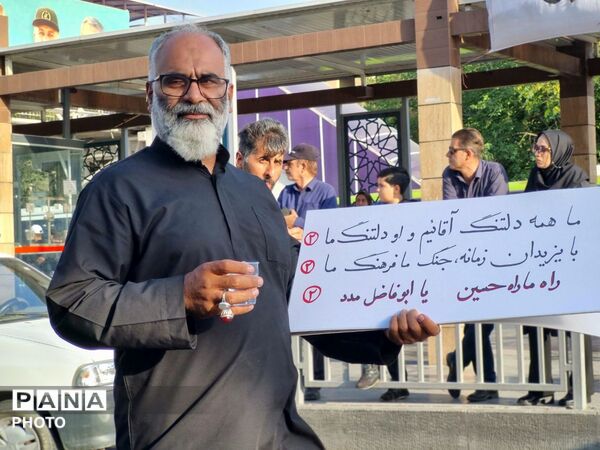 ما همه دلتنگ آقائیم و او دلتنگ ما ②
با یزیدان زمانه، جنگ ما فرهنگ ما ②
راه ما راه حسین یا ابوفاضل مدد ②
PANA
PHOTO